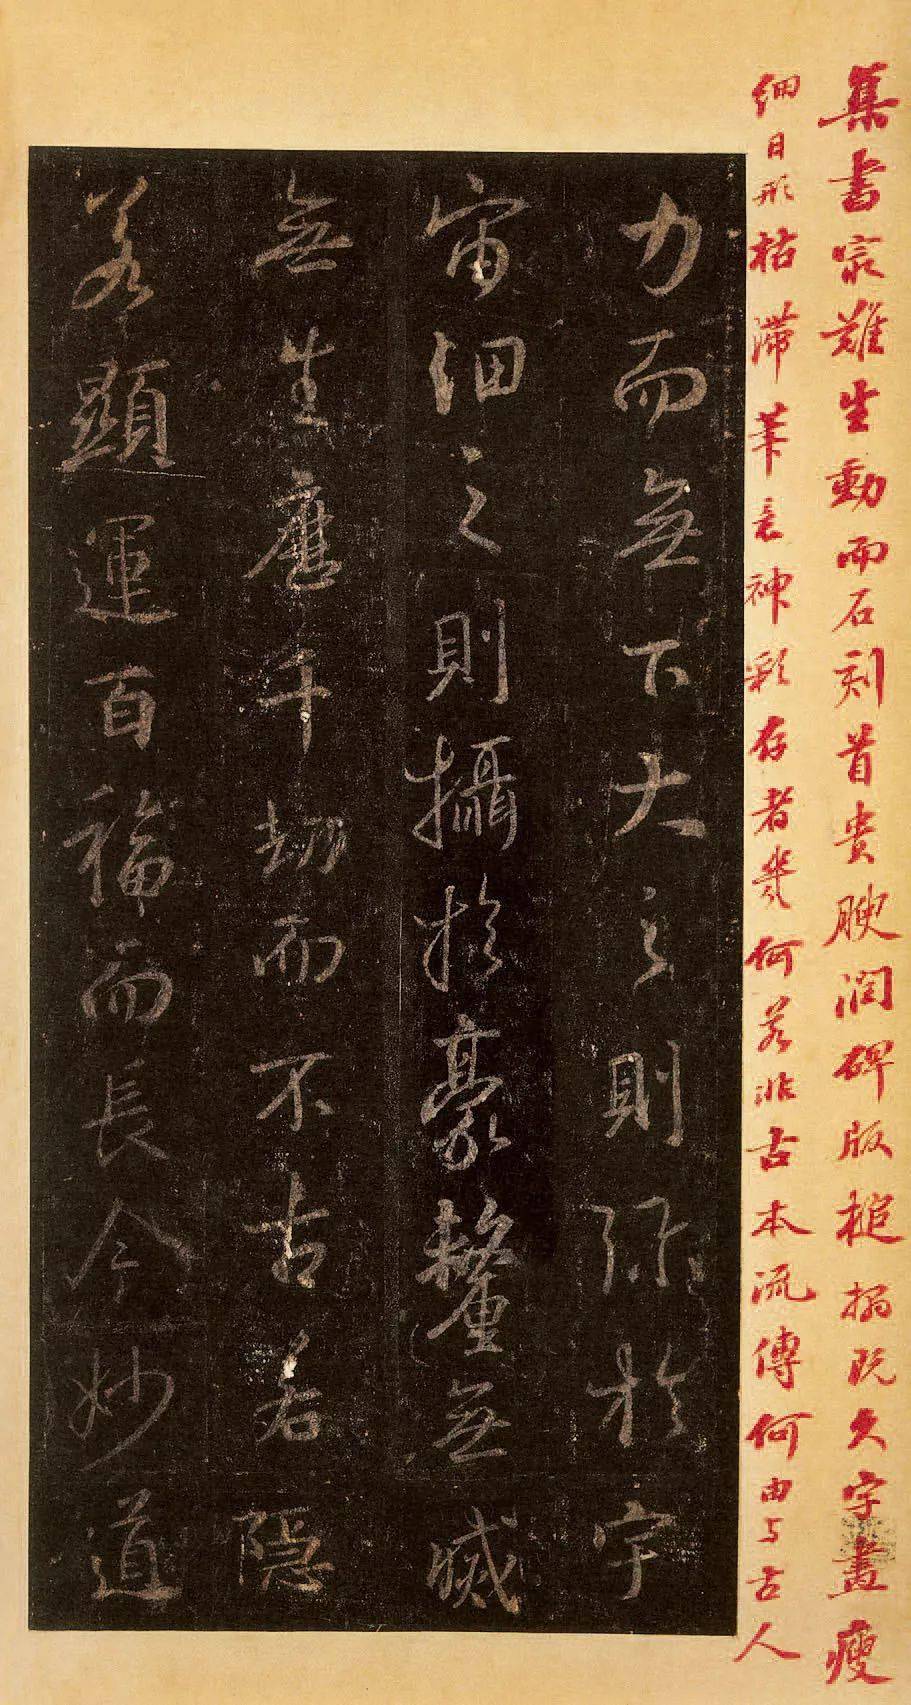 集書家難生動而石刻首貴腴潤碑版槌搨既久字畫瘦
細日形枯滯筆意神彩存者幾何若非古本流傳何由与古人
力而無下大之則弥於宇
宙細之則攝於豪釐無滅
無生歷千劫而不古若隱
若顯運百福而長今妙道